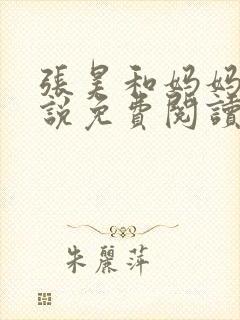 張昊和妈妈
說免費閱讀
朱麗萍